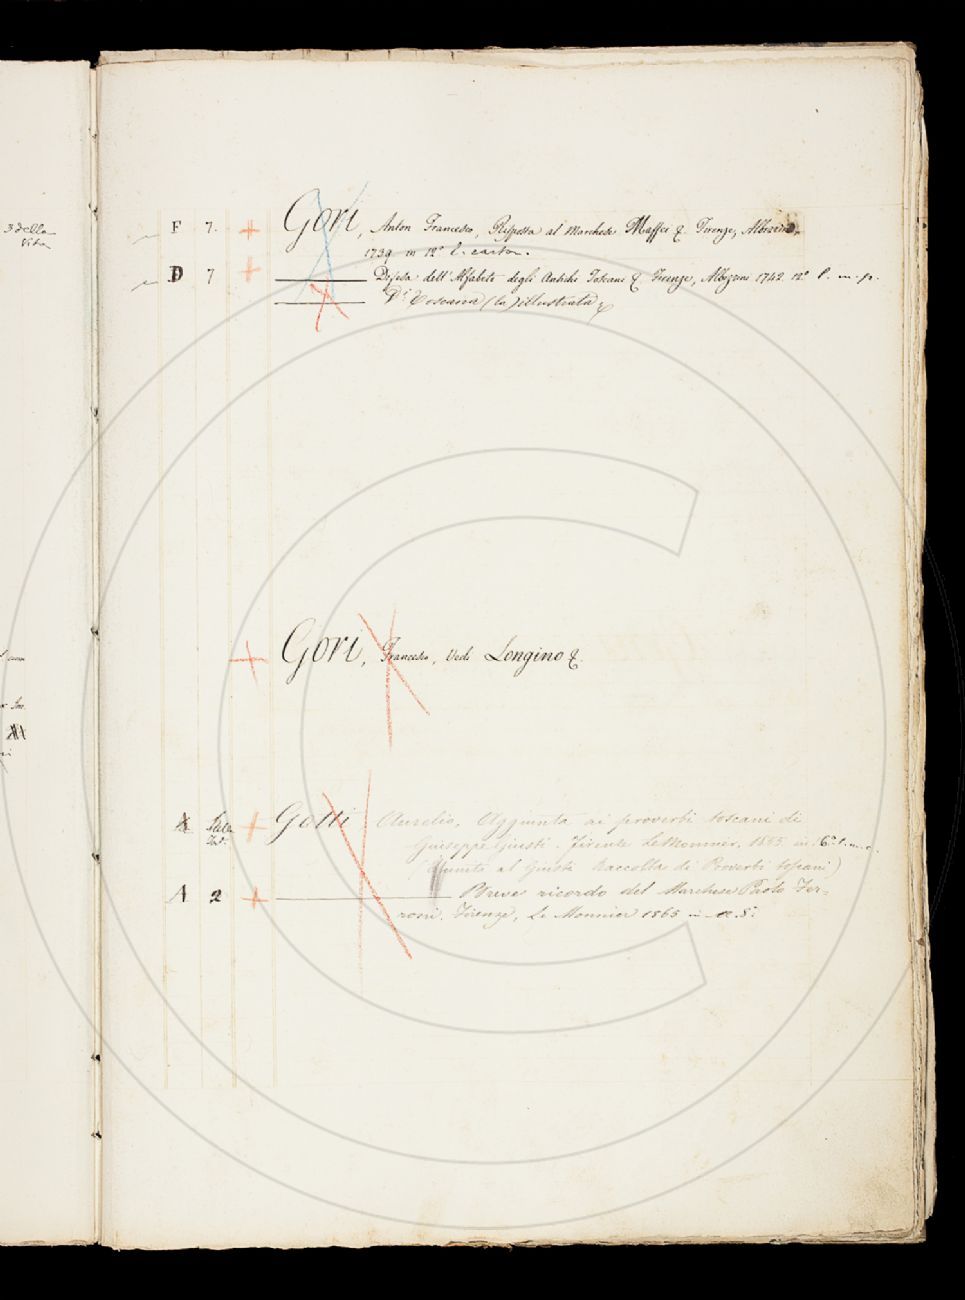 3 della
Vita
F 7. + Gori, Anton Francesco, Risposta al Marchese Maffei &. Firenze, Albizzini,
1739 in 12° l. carton.
D 7 + ——— Difesa dell'Alfabeto degli Antichi Toscani &. Firenze, Albizzini 1742. 12° l. m. p.
——— D.° Toscana (la) illustrata &
+ Gori, Francesco, Vedi Longino &.
Sala + Gotti Aurelio, Aggiunta ai proverbi toscani di
Giuseppe Giusti. Firenze Le Monnier, 1855. in 16° l. m. c.
(Unita al Giusti Raccolta di Proverbi toscani)
A 2 + ——— Breve ricordo del Marchese Paolo Fer-
roni. Firenze, Le Monnier 1865 in 8.°